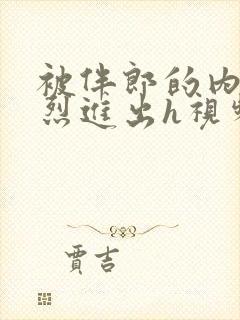 被伴郎的内
烈進出h視
賈吉